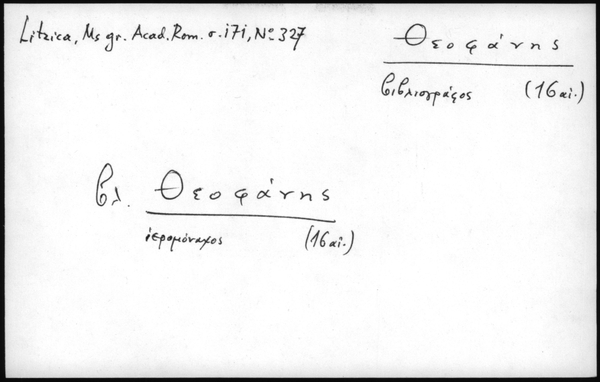 Litzica, Ms gr. Acad. Rom. σ. 171, Nº 327
Θεοφάνης
βιβλιογράφος (16 αἰ.)
βλ. Θεοφάνης
ἱερομόναχος (16 αἰ.)